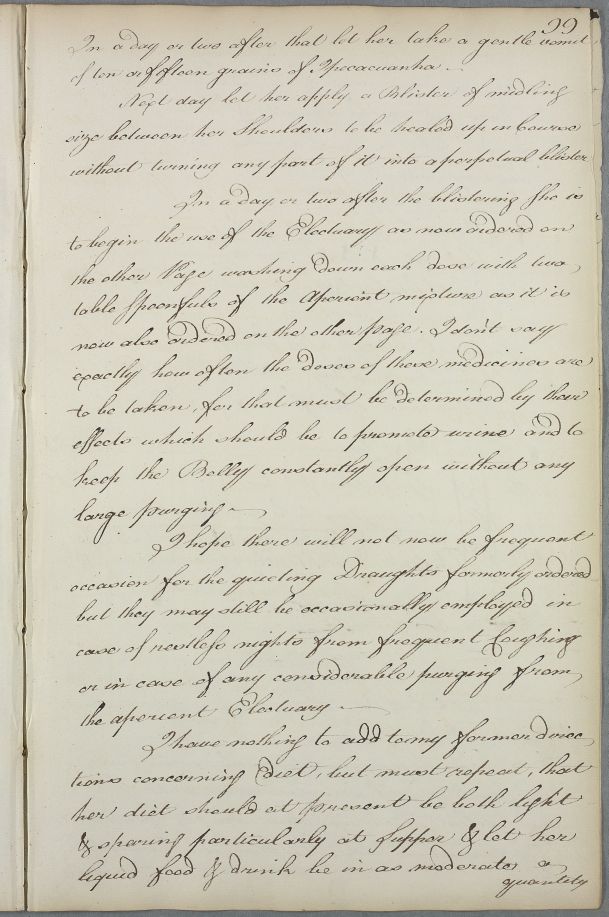 99
In a day or two after that let her take a gentle vomit
of ten or fifteen grains of Ipecacuanha.
Next day let her apply a Blister of midling
size between her Shoulders to be healed up in Course
without turning any part of it into a perpetual blister
In a day or two after the blistering She is
to begin the use of the Electuary as now ordered on
the other Page washing down each dose with two
table Spoonfuls of the Aperient mixture as it is
now also ordered on the other page. I don't say
exactly how often the doses of these medicines are
to be taken, for that must be determined by their
effects which should be to promote urine and to
keep the Belly constantly open without any
large purging
I hope there will not now be frequent
occasion for the quieting Draughts formerly ordered
but they may still be occasionally employed in
case of restless nights from frequent Coughing
or in case of any considerable purging from
the aperient Electuary
I have nothing to add to my former direc
tions concerning Diet, but must repeat, that
her diet should at present be both light
& sparing particularly at Supper & let her
liquid food & drink be in as moderate a
quantity